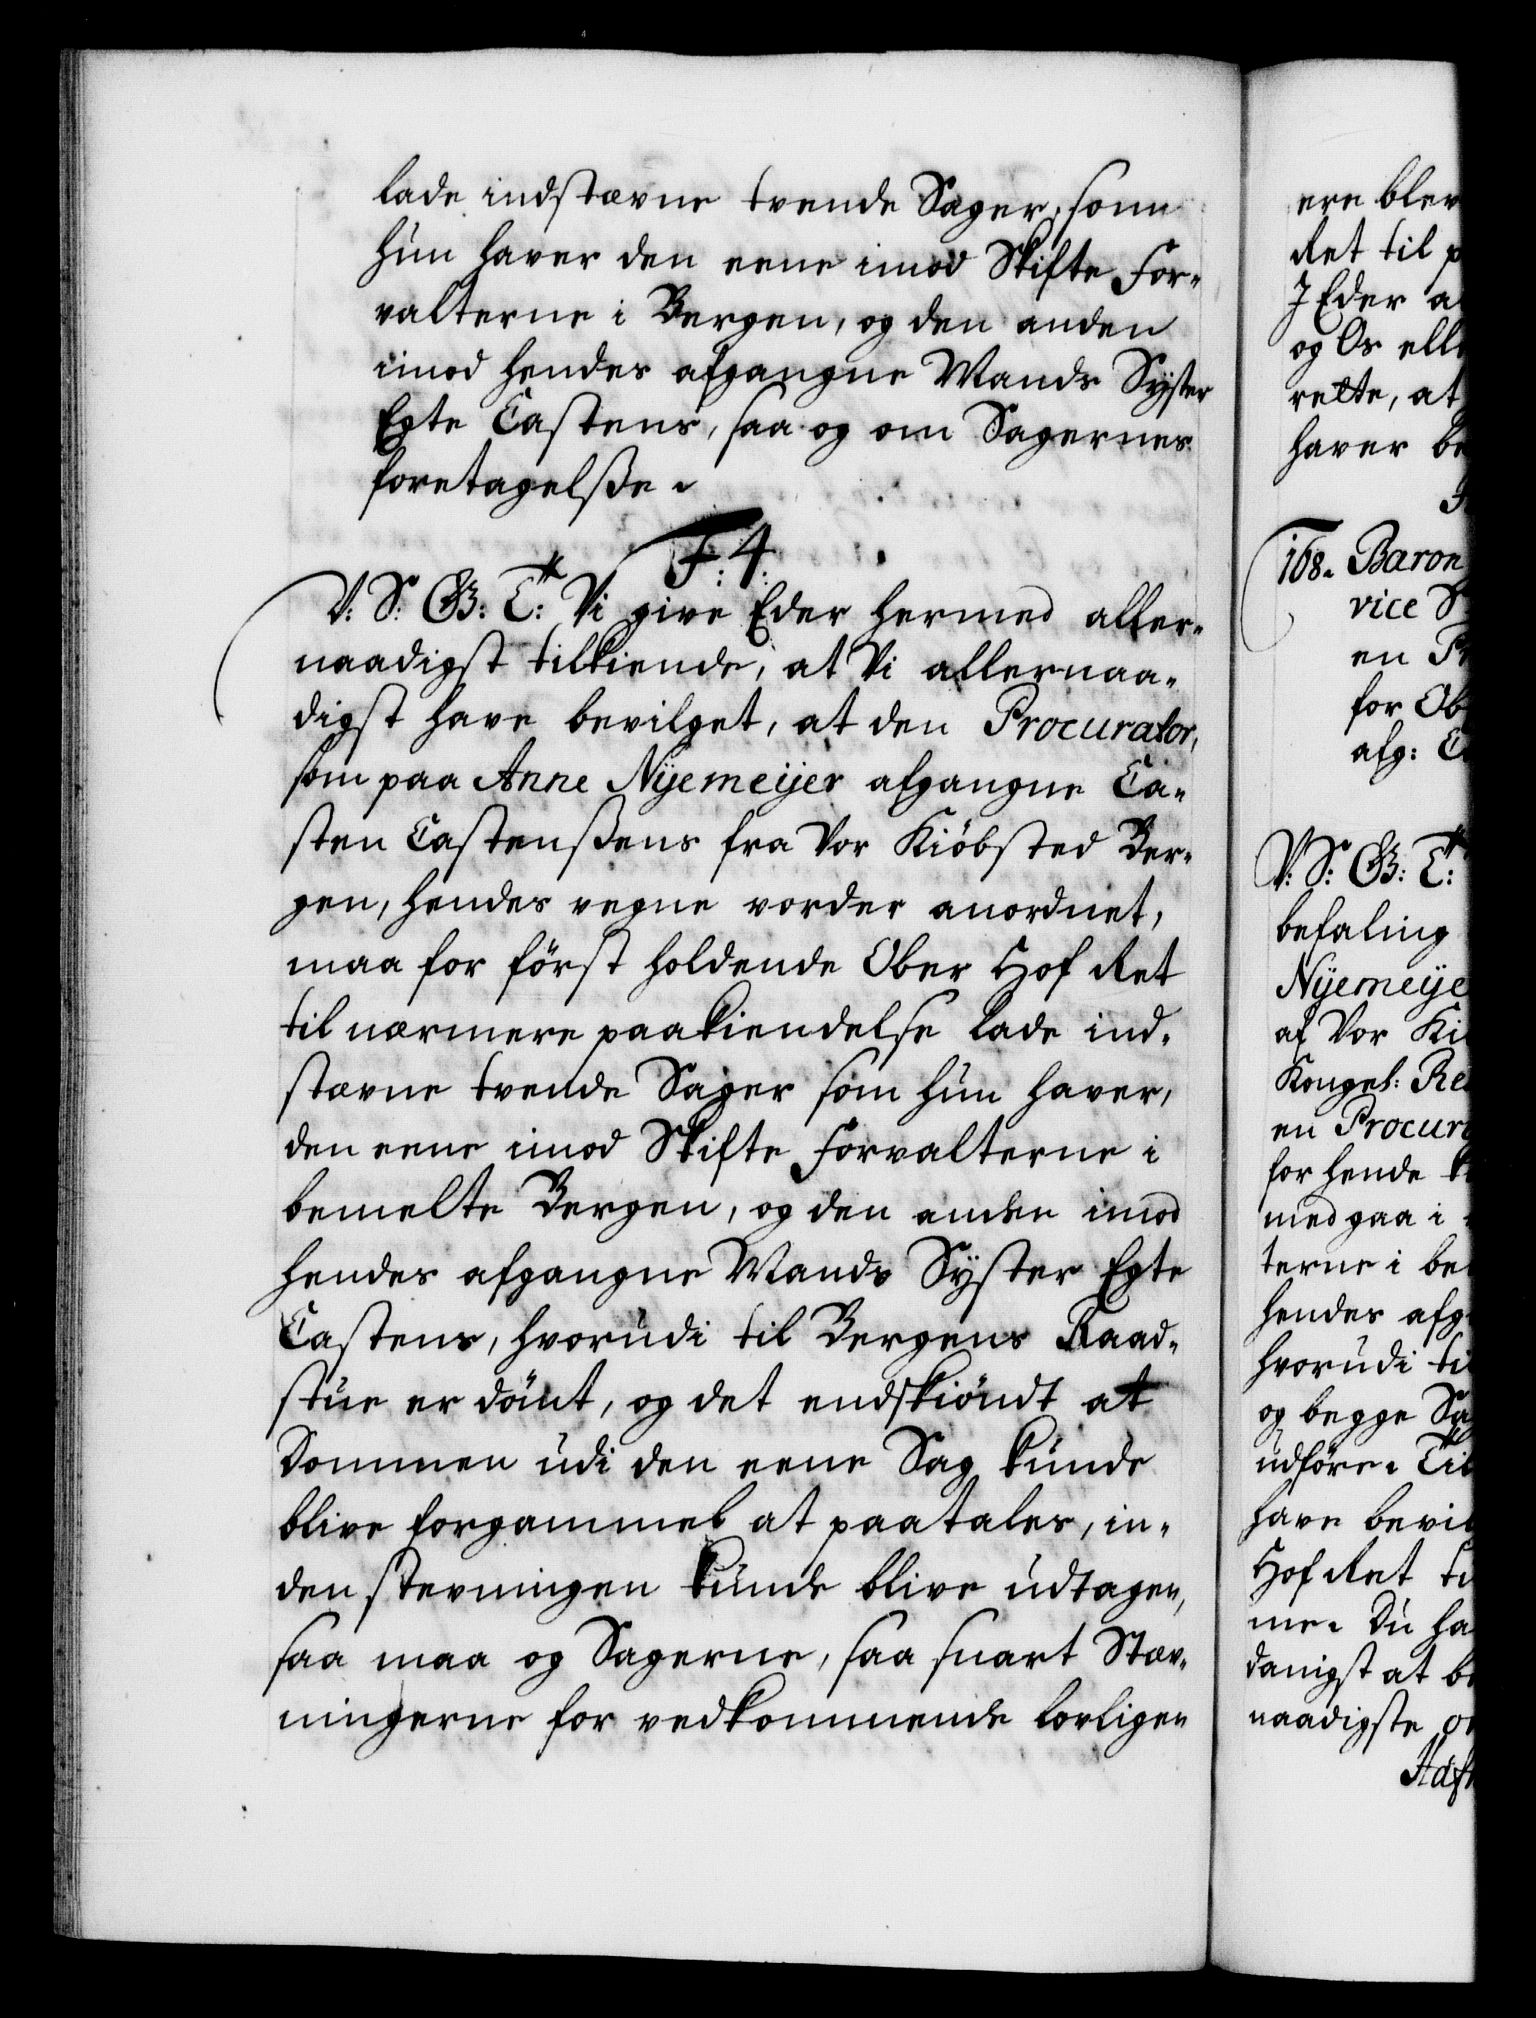 lade indstævne tvende Sager, som
hun haver den eene imod Skifte For-
valterne i Bergen, og den anden
imod hendes afgangne Mands Syster
Egte Castens, saa og om Sagernes
foretagelsse.
F. 4.
V: S: G: T: Vi give Eder hermed aller-
naadigst tilkiende, at Vi allernaa-
digst have bevilget, at den Procurator,
som paa Anne Nÿemeÿer afgangne Ca-
sten Castenssens fra Vor Kiöbsted Ber-
gen, hendes vegne vorder anordnet,
maa for först holdende Ober Hof Ret
til nærmere paakiendelse lade ind-
stævne tvende Sager som hun haver,
den eene imod Skifte Forvalterne i
bemelte Bergen, og den anden imod
hendes afgangne Mands Syster Egte
Castens, hvorudi til Bergens Raad-
stue er dömt, og det endskiöndt at
Dommen udi den eene Sag kunde
blive forgammel at paatales, in-
den stevningen kunde blive udtagen,
saa maa og Sagerne, saa snart Stæv-
ningerne for vedkommende lovligen
ere blev
Ret til
J Eder
og Os
rette, at
haver
168. Baron
vice
en
for
afg:
V: S: G: T:
befaling
Nÿemeÿe
af Vor
Kongel:
en Procur
for hende
med gaa i
terne i be
hendes afg
hvorudi
og begge
udföre.
have bevil
Hof Ret
me. Du
danigst at
naadigste